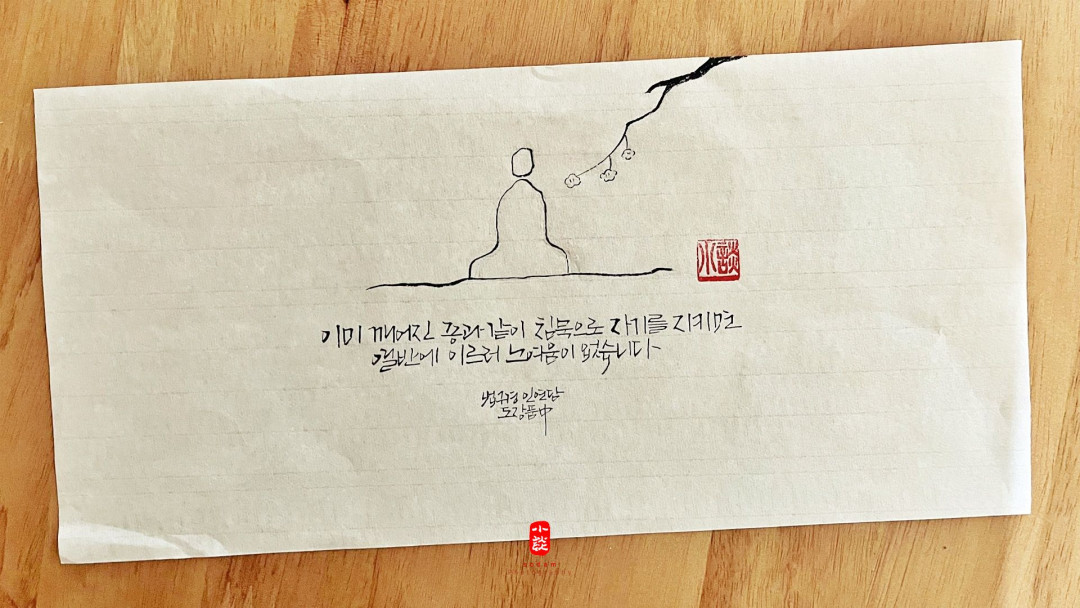 小談
이미 깨어진 종과 같이 침묵으로 자기를 지키면
열반에 이르러 노여움이 없습니다
법구경 인연담
도장품中
小談